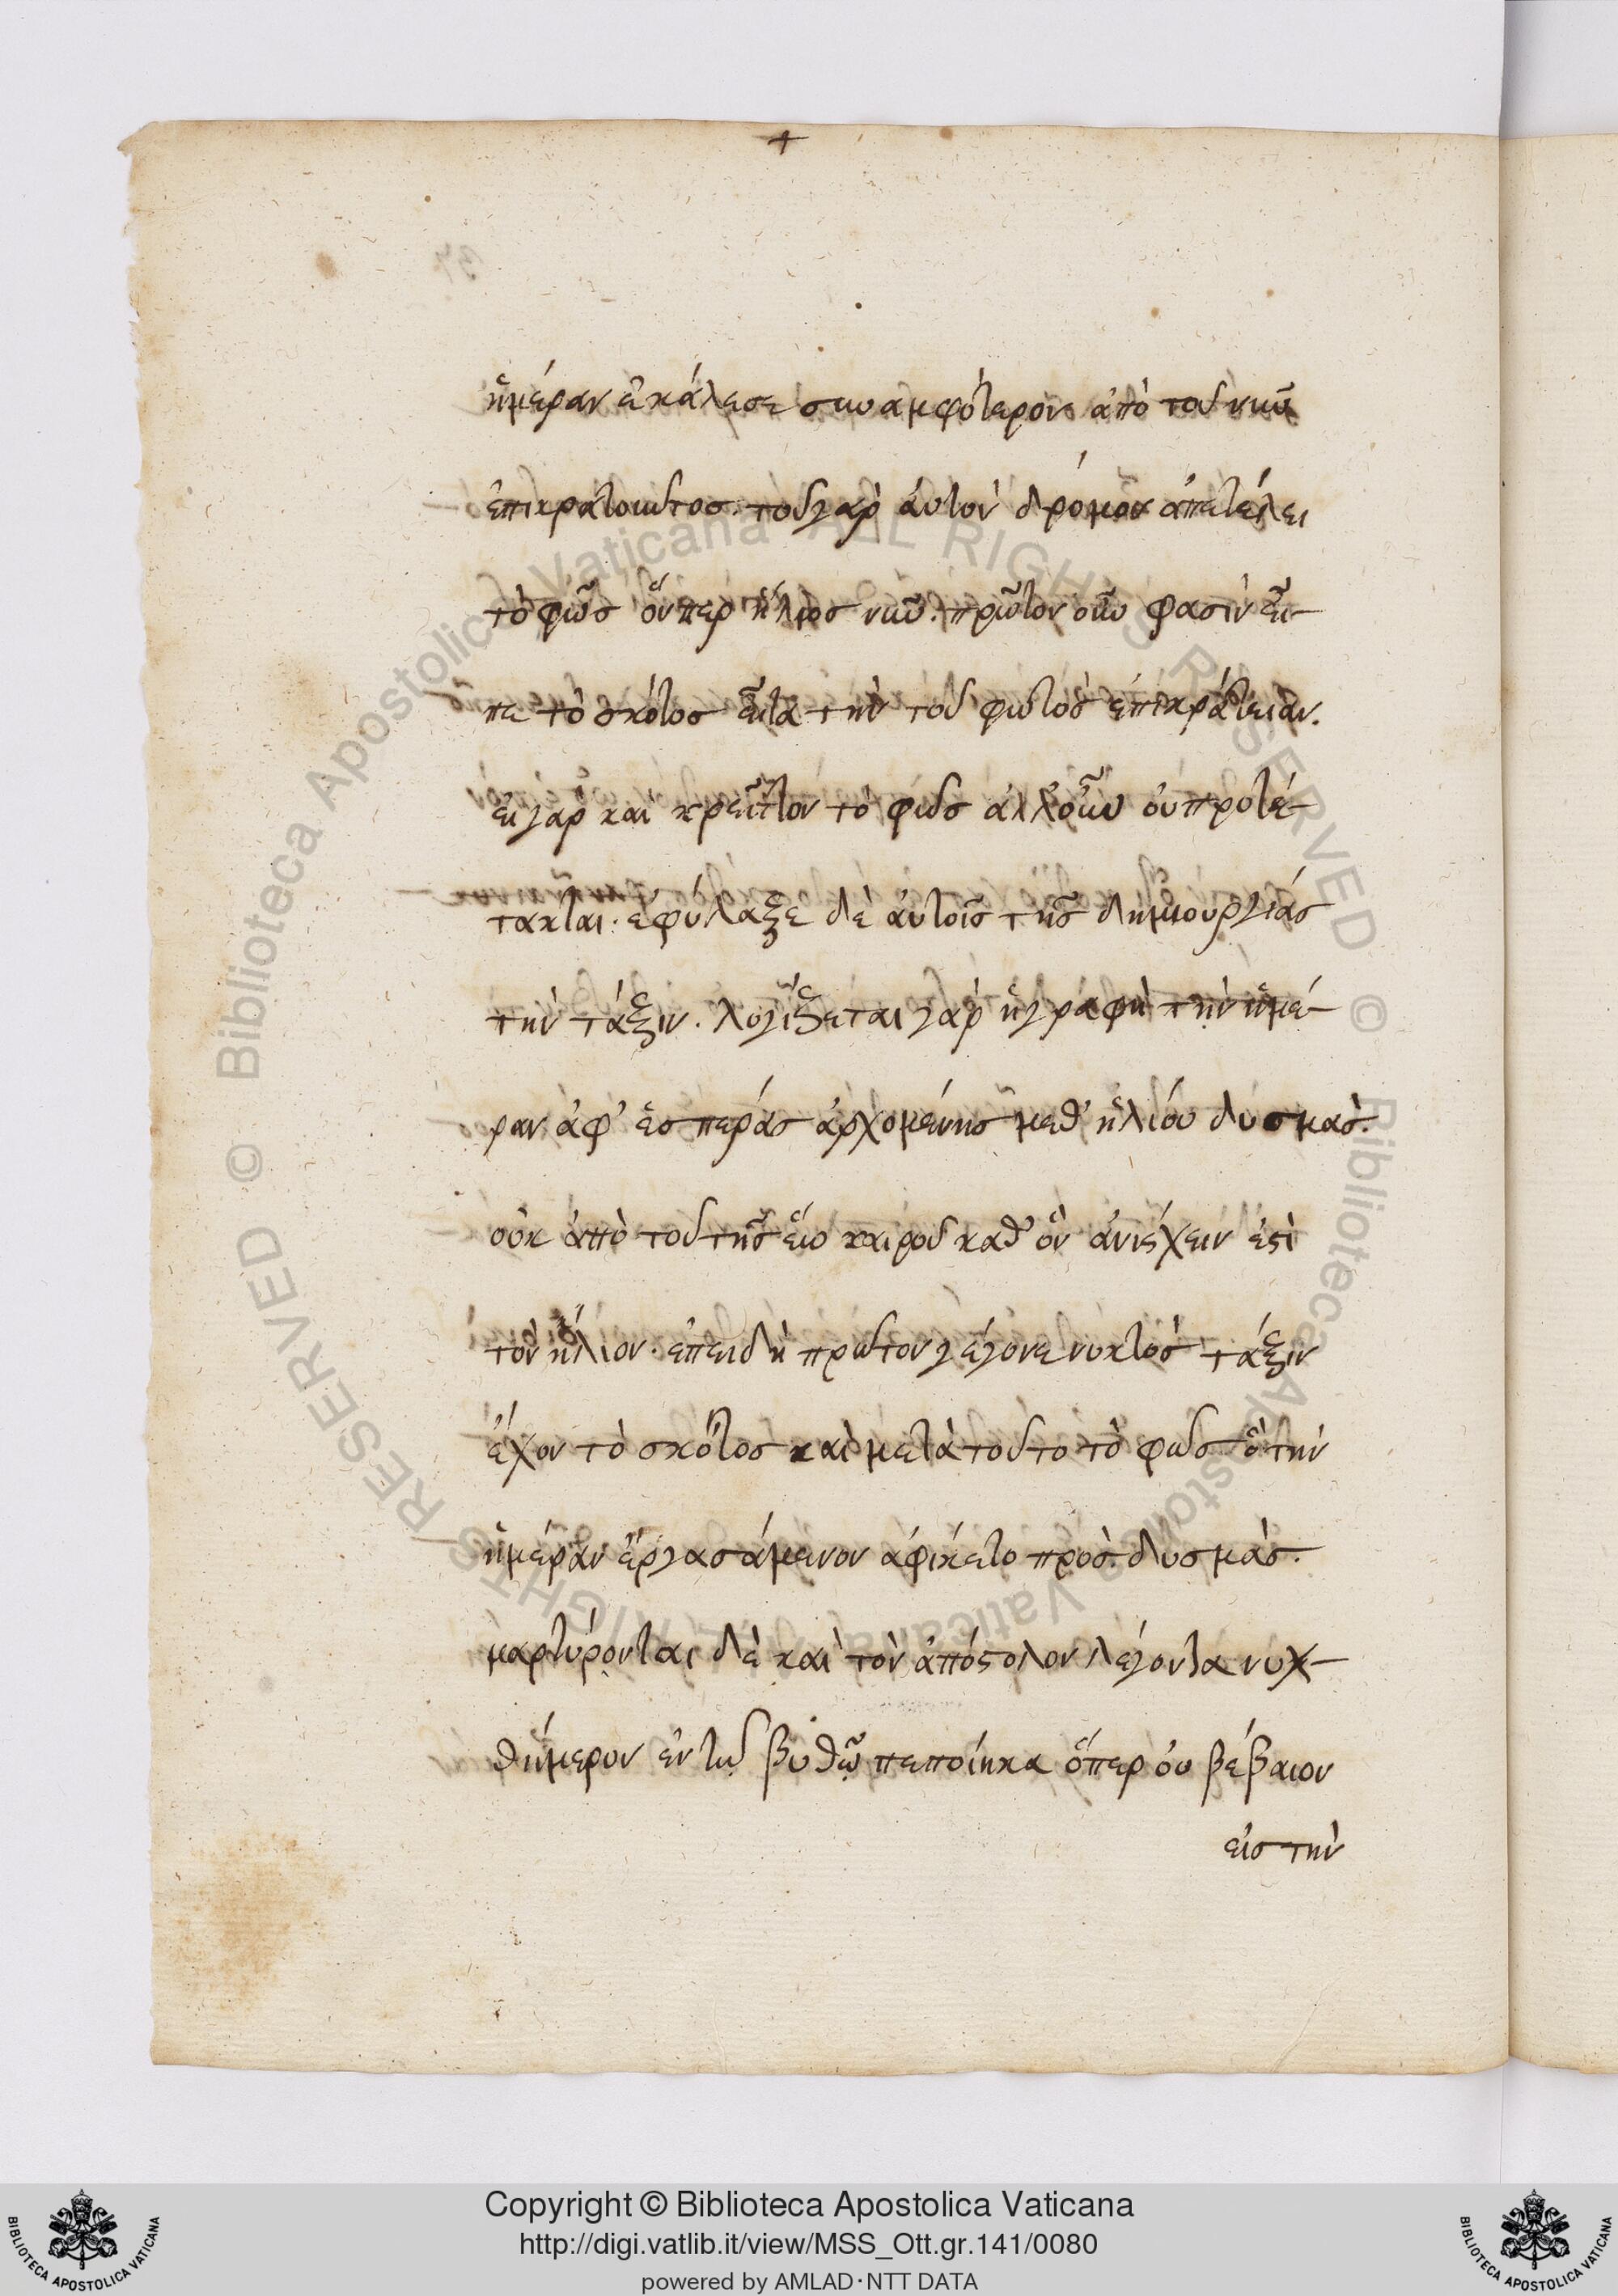 +
ἡμέραν ἐκάλεσε συναμφότερον ἀπὸ τοῦ νῦν
ἐπικρατοῦντος. τοῦ γὰρ ἀυτὸν δρόμον ἀπετέλει
τὸ φῶς ὅνπερ ἥλιος νῦν. πρῶτον οὖν φασὶν εἶ-
πε τὸ σκότος εἶτα τὴν τοῦ φωτὸς ἐπικράτειαν.
εἰ γὰρ καὶ κρεῖττον τὸ φῶς ἀλλ' οὖν ὀυ προτέ-
τακται. ἐφύλαξε δὲ ἀυτοῖς τῆς δημιουργίας
τὴν τάξιν. λογίζεται γὰρ ἡ γραφὴ τὴν ἡμέ-
ραν ἀφ' ἑσπερας ἀρχομένης μεθ' ἡλίου δυσμὰς.
οὐκ ἀπὸ τοῦ τῆς ἕω καιροῦ καθ' ὃν ἀνίσχειν ἐστὶ
τὸν ἥλιον. ἐπειδὴ πρῶτον γέγονε νυκτὸς τάξιν
ἔχον τὸ σκότος καὶ μετὰ τοῦτο τὸ φῶς ὃ τὴν
ἡμέραν ἐργασάμενον ἀφίκετο πρὸς δυσμὰς.
μαρτύρονται δὲ καὶ τὸν ἀπόστολον λέγοντα νυχ-
θήμερον ἐν τῷ βυθῷ πεποίηκα ὅπερ ὀυ βέβαιον
εἰς τὴν
Copyright © Biblioteca Apostolica Vaticana
http://digi.vatlib.it/view/MSS_Ott.gr.141/0080
powered by AMLAD·NTT DATA
BIBLIOTECA APOSTOLICA VATICANA
BIBLIOTECA APOSTOLICA VATICANA
© Biblioteca Apostolica Vaticana ALL RIGHTS RESERVED © Biblioteca Apostolica Vaticana ALL RIGHTS RESERVED